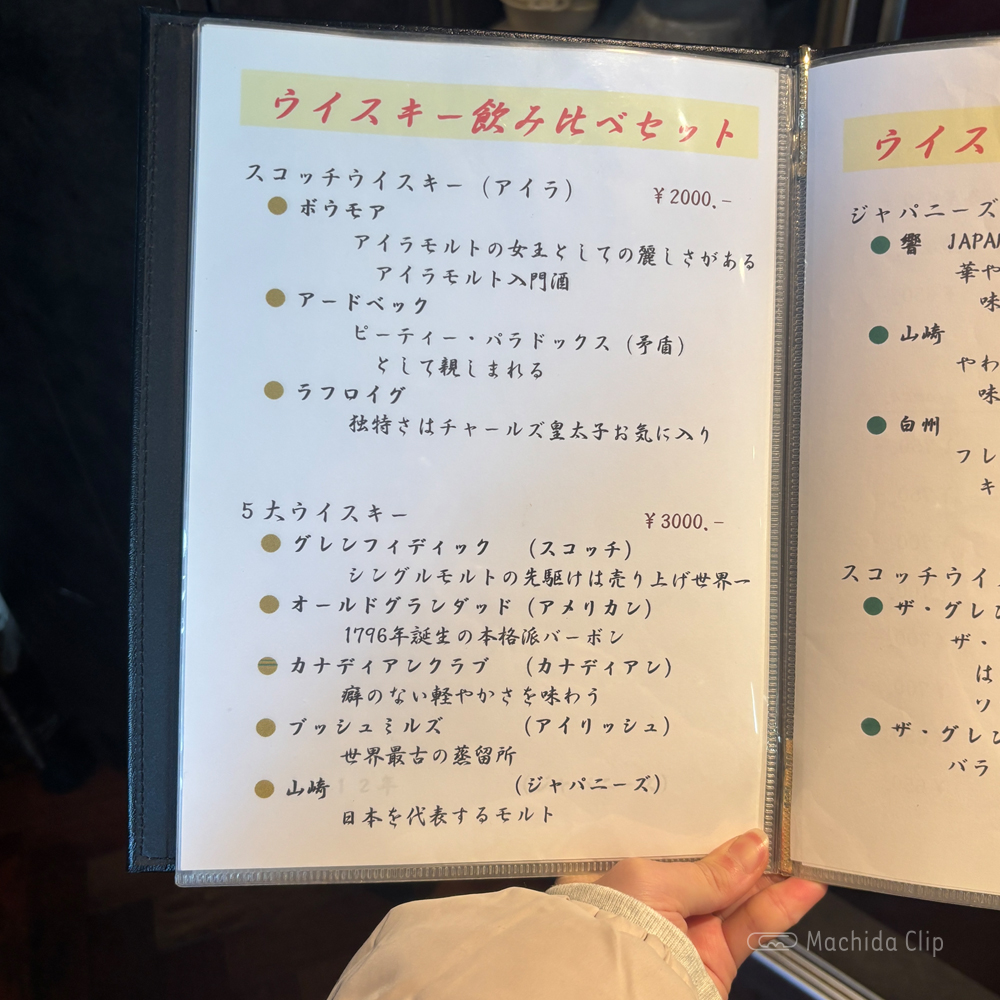 ウイスキー飲み比べセット
スコッチウイスキー（アイラ） ￥2000.-
ボウモア
アイラモルトの女王としての麗しさがある
アイラモルト入門酒
アードベック
ピーティー・パラドックス（矛盾）
として親しまれる
ラフロイグ
独特さはチャールズ皇太子お気に入り
5大ウイスキー ￥3000.-
グレンフィディック （スコッチ）
シングルモルトの先駆けは売り上げ世界一
オールドグランダッド（アメリカン）
1796年誕生の本格派バーボン
カナディアンクラブ （カナディアン）
癖のない軽やかさを味わう
ブッシュミルズ （アイリッシュ）
世界最古の蒸留所
山崎12年 （ジャパニーズ）
日本を代表するモルト
ウイス
ジャパニーズ
響 JAPAN
華や
味
山崎
やわ
味
白州
フレ
キ
スコッチウイ
ザ・グレン
ザ・
は
ソ
ザ・グレン
バラ
Machida Clip